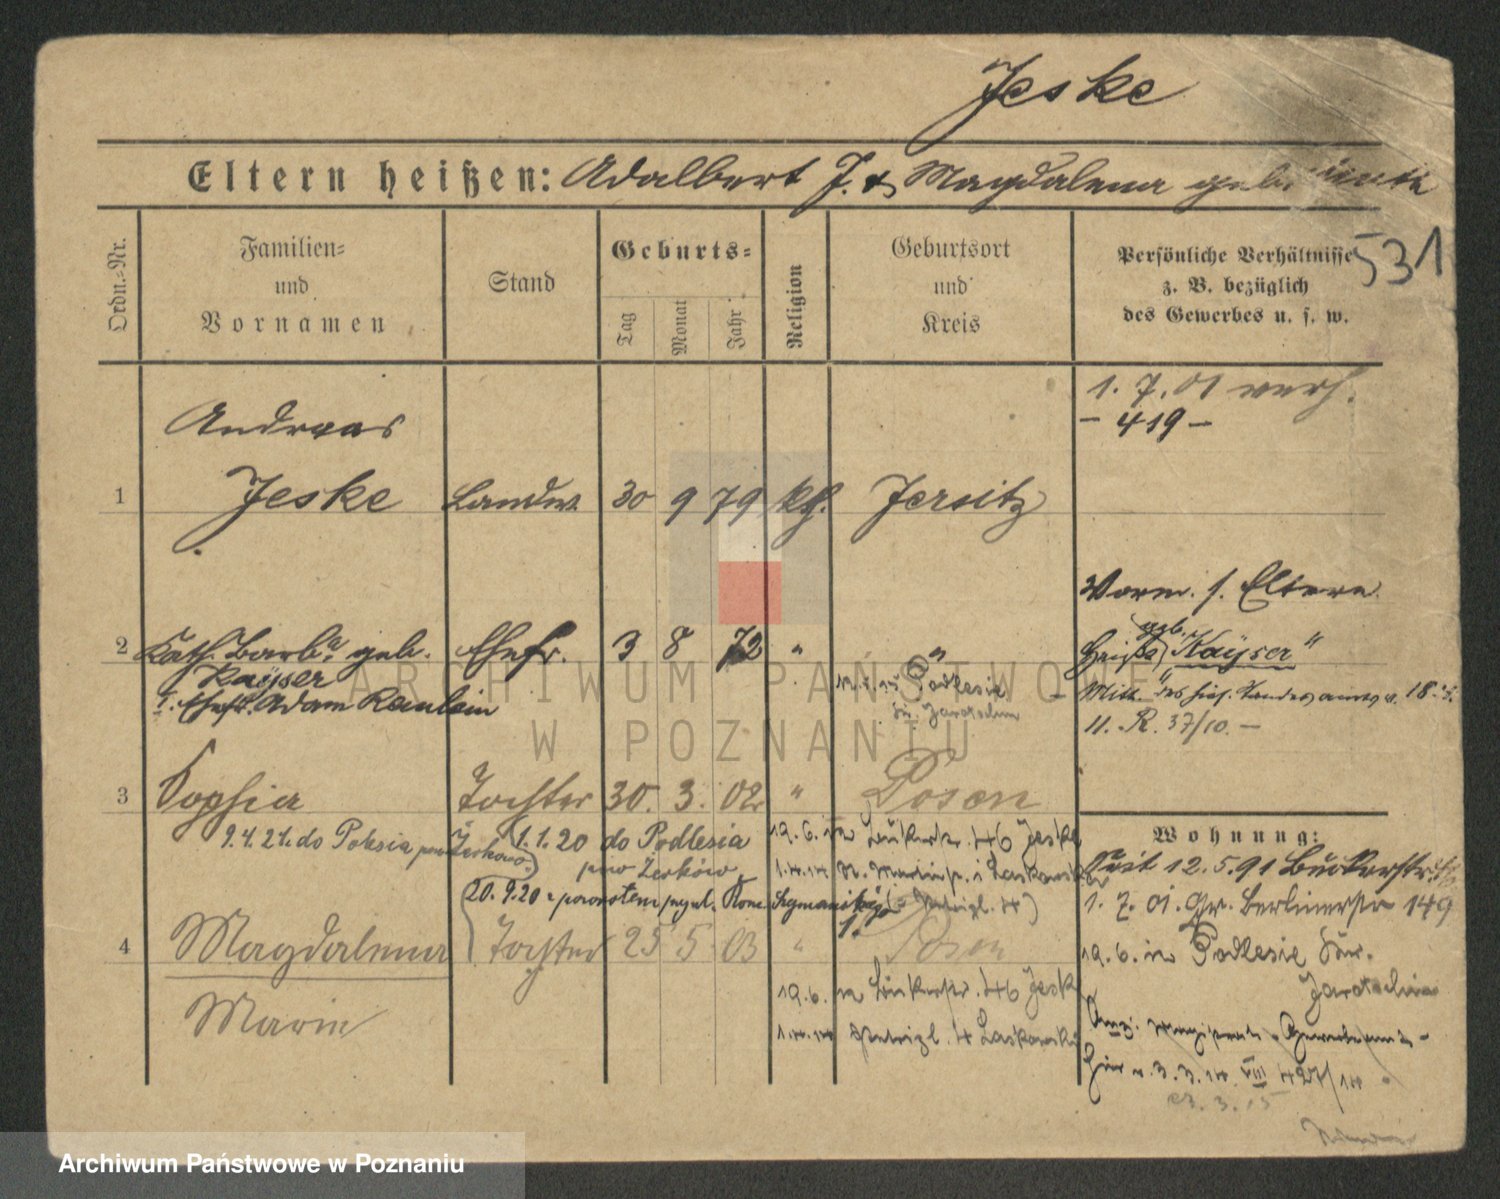 Jeske
Eltern heißen: Adalbert J. & Magdalena geb.
531
Ordn.-Nr.
Familien-
und
Vornamen
Stand
Geburts-
Tag
Monat
Jahr
Religion
Geburtsort
und
Kreis
Persönliche Verhältnisse
z. B. bezüglich
des Gewerbes u. s. w.
1. 7. 01 verh.
- 419 -
Andreas
1 Jeske Landw. 30 9 79 kth. Jersitz
Vorm. s. Eltern
2 Kath. Barb. geb. Ehefr. 3 8 72 " "
geb.
Kayser"
Kayser
Adam
Podlesie
Kr. Jarotschin
18.
11. R. 37/10. -
3 Sophia Tochter 30. 3. 02 " Posen
9.4.21. do Polesia pow Żerkow
1.1.20 do Podlesia
pow Żerków
19.6. in Bukerstr. 46 Jeske
1.4.14 St. Martinstr. Laskowski
20.9.20 z powrotem
Szymański
Wohnung:
Seit 12.5.91 Bukerstr.
1. 7. 01. Gr. Berlinerstr 149
4 Magdalena Tochter 25 5 03 " Posen
19. 6. in Podlesie Kr.
Jarotschin
Marie
19.6. in Bukerstr. 46 Jeske
1.4.14 4 Laskowski
3.3.14 VIII 427/14
3. 15
ARCHIWUM PAŃSTWOWE
W POZNANIU
Archiwum Państwowe w Poznaniu